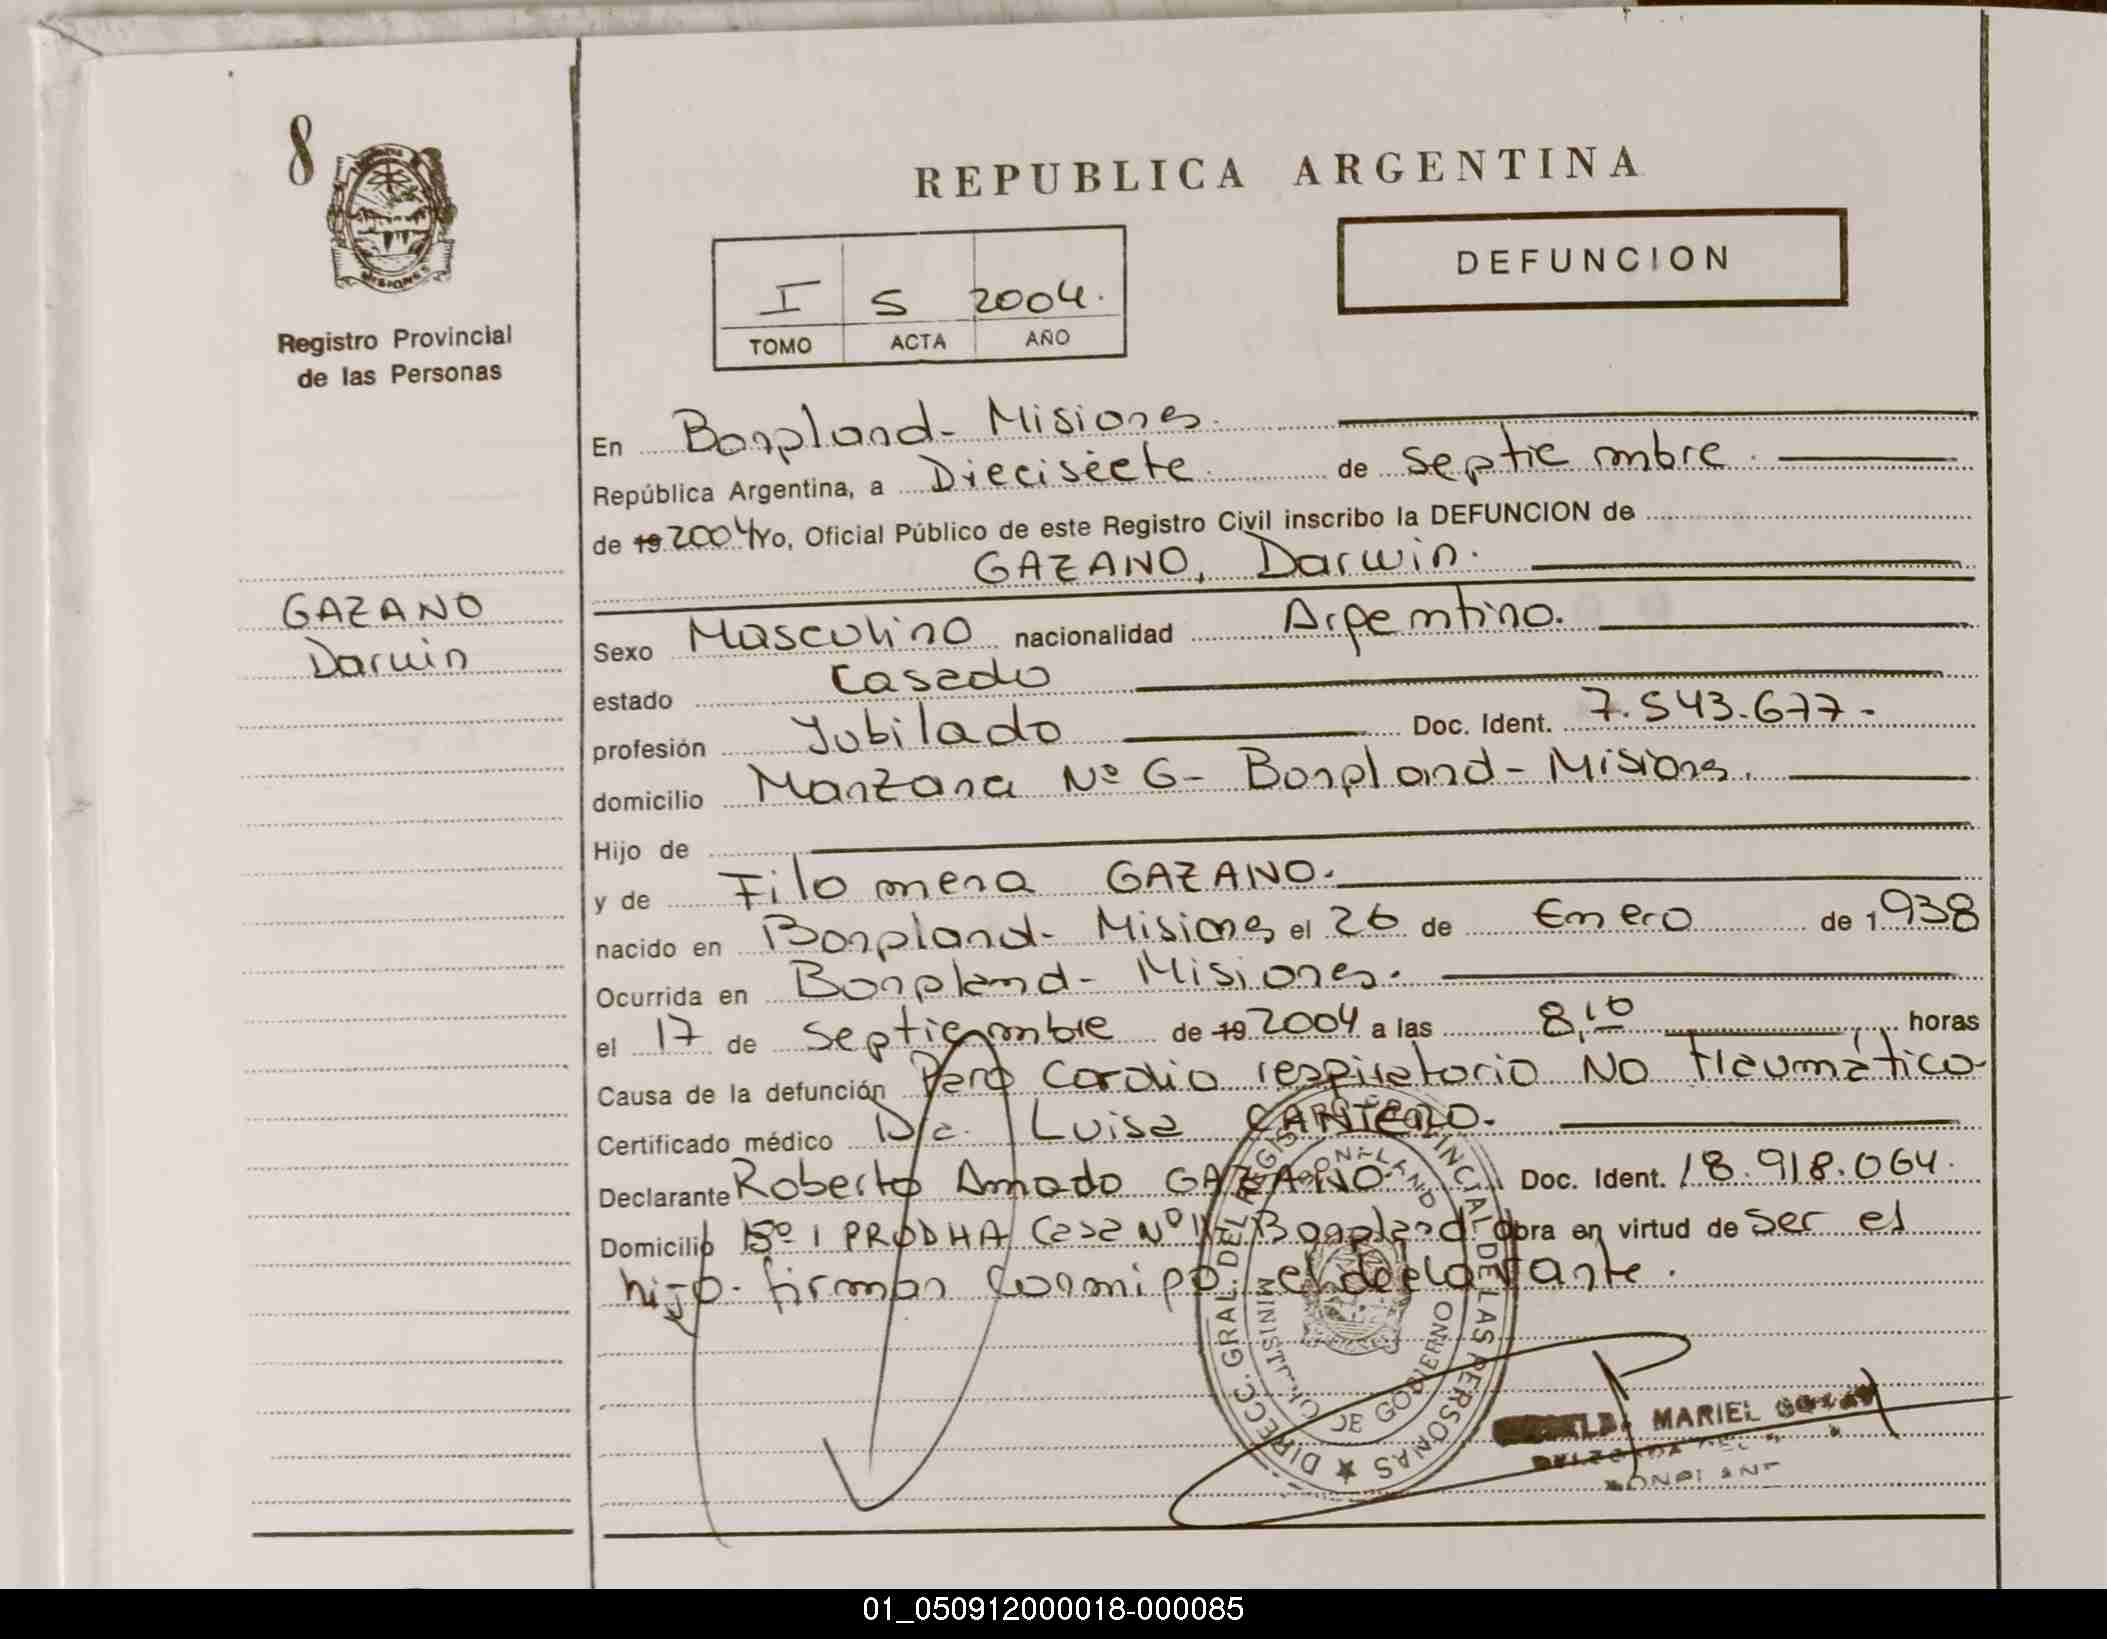 8
REPUBLICA ARGENTINA
DEFUNCION
I S 2004.
TOMO ACTA AÑO
Registro Provincial
de las Personas
MISIONES
GAZANO
Darwin
En Bonpland - Misiones.
República Argentina, a Diecisiete. de Septiembre.
de 19 2004 Yo, Oficial Público de este Registro Civil inscribo la DEFUNCION de
GAZANO, Darwin.
Sexo Masculino nacionalidad Argentino.
estado Casado
profesión Jubilado Doc. Ident. 7.543.677.-
domicilio Manzana Nº 6 - Bonpland - Misiones.
Hijo de
y de Filomena GAZANO.
nacido en Bonpland - Misiones el 26 de Enero de 1938
Ocurrida en Bonpland - Misiones.
el 17 de Septiembre de 19 2004 a las 8,10 horas
Causa de la defunción Paro Cardio respiratorio No Traumático
Certificado médico Dra. Luisa CANTERO.
Declarante Roberto Amado GAZANO. Doc. Ident. 18.918.064.
Domicilio Bº 1 PRODHA Casa Nº 11 - Bonpland obra en virtud de Ser el
hijo - firman conmigo el declarante.
DIRECC. GRAL. DEL REGISTRO PROVINCIAL DE LAS PERSONAS
BONPLAND
MINISTERIO DE GOBIERNO
MARIEL
BONPLAND
01_050912000018-000085